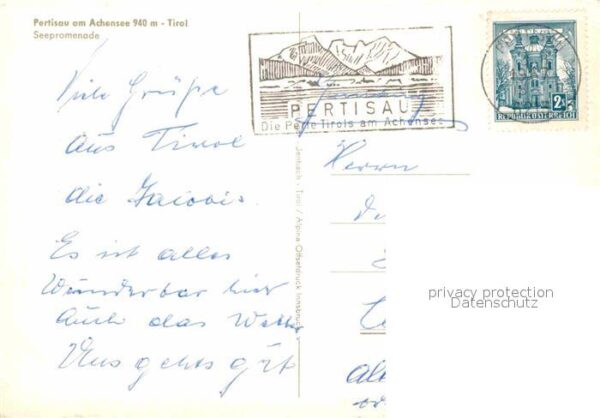 Pertisau am Achensee 940 m - Tirol
Seepromenade
PERTISAU
Die Perle Tirols am Achensee
2S
REPUBLIK ÖSTERREICH
Viele Grüße
aus Tirol
die Jacobis.
Es ist alles
Wunderbar hier
Auch das Wetter
Uns gehts gut
Jenbach - Tirol / Alpine Offsetdruck Innsbruck
Herrn
privacy protection
Datenschutz